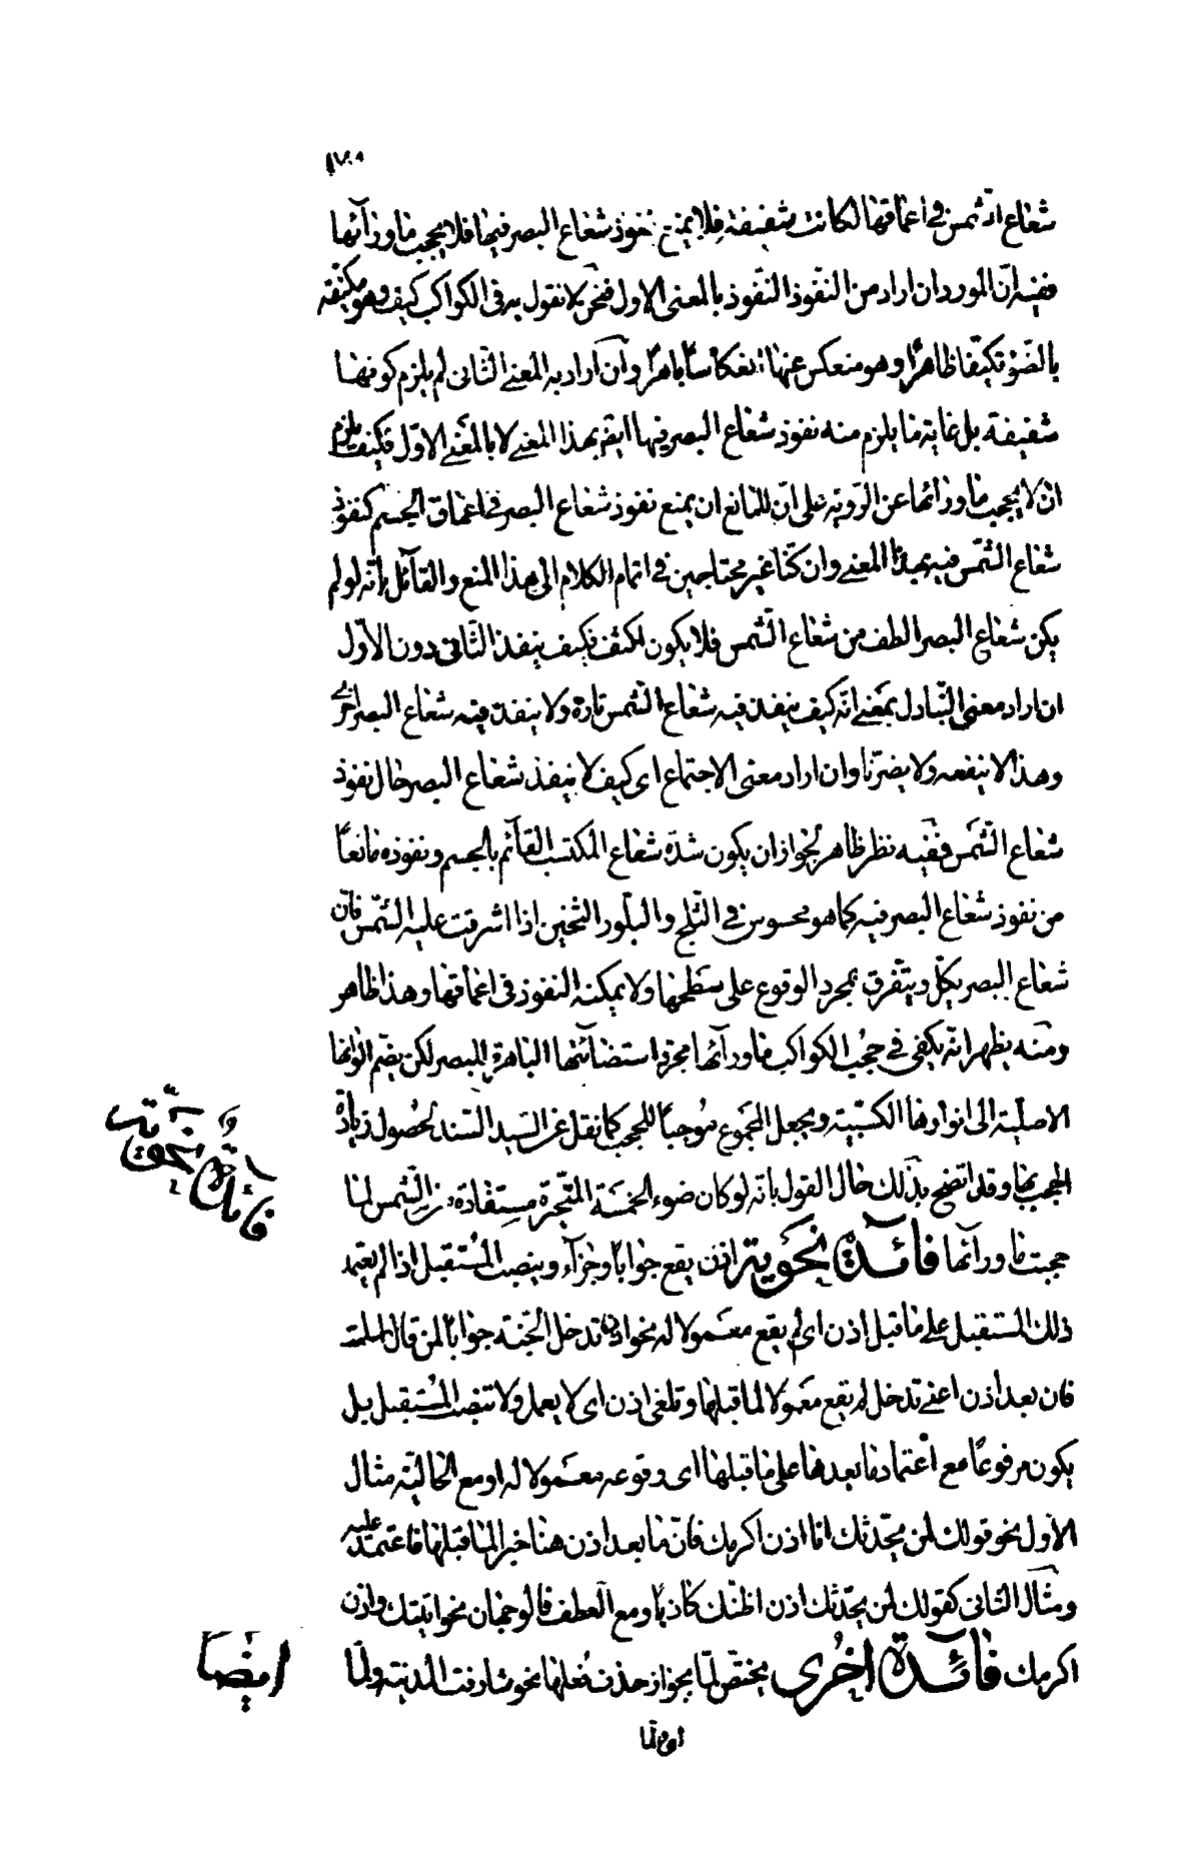 شعاع الشمس في اعماقها لكانت شفيفة فلا يمنع نفوذ شعاع البصر فيها فلا يحجب ما ورآئها
ففيه انّ المورد ان اراد من النفوذ النفوذ بالمعنى الاول فنحن لا نقول به في الكواكب كيف وهو مكيّفة
بالضوء تكيّفا ظاهرًا وهو منعكس عنها انعكاسًا باهرًا وان اراد به المعنى الثانى لم يلزم كونها
شفيفة بل غاية ما يلزم منه نفوذ شعاع البصر فيها ايضً بهذا المعنى لا بالمعنى الاوّل فكيف يلزم
ان لا يحجب ما ورائها عن الرّوية على انّ للمانع ان يمنع نفوذ شعاع البصر في اعماق الجسم كنفوذ
شعاع الشمس فيه بهذا المعنى وان كنّا غير محتاجين في اتمام الكلام الى هذا المنع والقآئل بانّه لو لم
يكن شعاع البصر الطف من شعاع الشّمس فلا يكون اكثف فكيف ينفذ الثّانى دون الاوّل
ان اراد معنى التّبادل بمعنى انّه كيف ينفذ فيه شعاع الشّمس تارة ولا ينفذ فيه شعاع البصر اخرى
وهذا لا ينفعه ولا يضرّنا وان اراد معنى الاجتماع اى كيف لا ينفذ شعاع البصر حال نفوذ
شعاع الشّمس ففيه نظر ظاهر لجواز ان يكون شدّة شعاع المكتسب القآئم بالجسم ونفوذه مانعًا
من نفوذ شعاع البصر فيه كما هو محسوس في الثّلج والبلّور الثخين اذا اشرقت عليه الشمس فانّ
شعاع البصر يكلّ ويتفّرق بمجرد الوقوع على سطحها ولا يمكنه النفوذ في اعماقها وهذا ظاهر
ومنه يظهر انّه يكفى في حجب الكواكب ما ورآئها مجرّد استضآئتها الباهرة للبصر لكن يضم الوانها
الاصليّة الى انوارها الكسبيّة ويجعل المجموع موجبًا للحجب كما نقل عن السّيد السّند لحصول زيادة
الحجب بها وقد اتضح بذلك حال القول بانّه لو كان ضوء الخمسة المتحيّرة مستفادة من الشّمس لما
حجبت ما ورآئها فائدة نحوية اذن يقع جوابًا وجزآء وينصب المستقبل اذا لم يعتمد
ذلك المستقبل على ما قبل اذن اى لم يقع معمولا له نحو اذن تدخل الجنّة جوابًا لمن قال اسلمت
فان بعد اذن اعنى تدخل لم يقع معمولا لما قبلها وتلغى اذن اى لا يعمل ولا تنصب المستقبل بل
يكون مرفوعًا مع اعتماد ما بعدها على ما قبلها اى وقوعه معمولا له او مع الحاليّة مثال
الاول نحو قولك لمن يحدّثك انا اذن اكرمك فانّ ما بعد اذن هنا خبر لما قبلها فاعتمد عليه
ومثال الثانى كقولك لمن يحدّثك اذن اظنّك كاذبًا ومع العطف فالوجهان نحو اتيتك واذن
اكرمك فائدة اخرى يختصّ لمّا بجواز حذف فعلها نحو شارفت المدينة ولمّا
اى ولمّا
فائدة نحوية
ايضًا